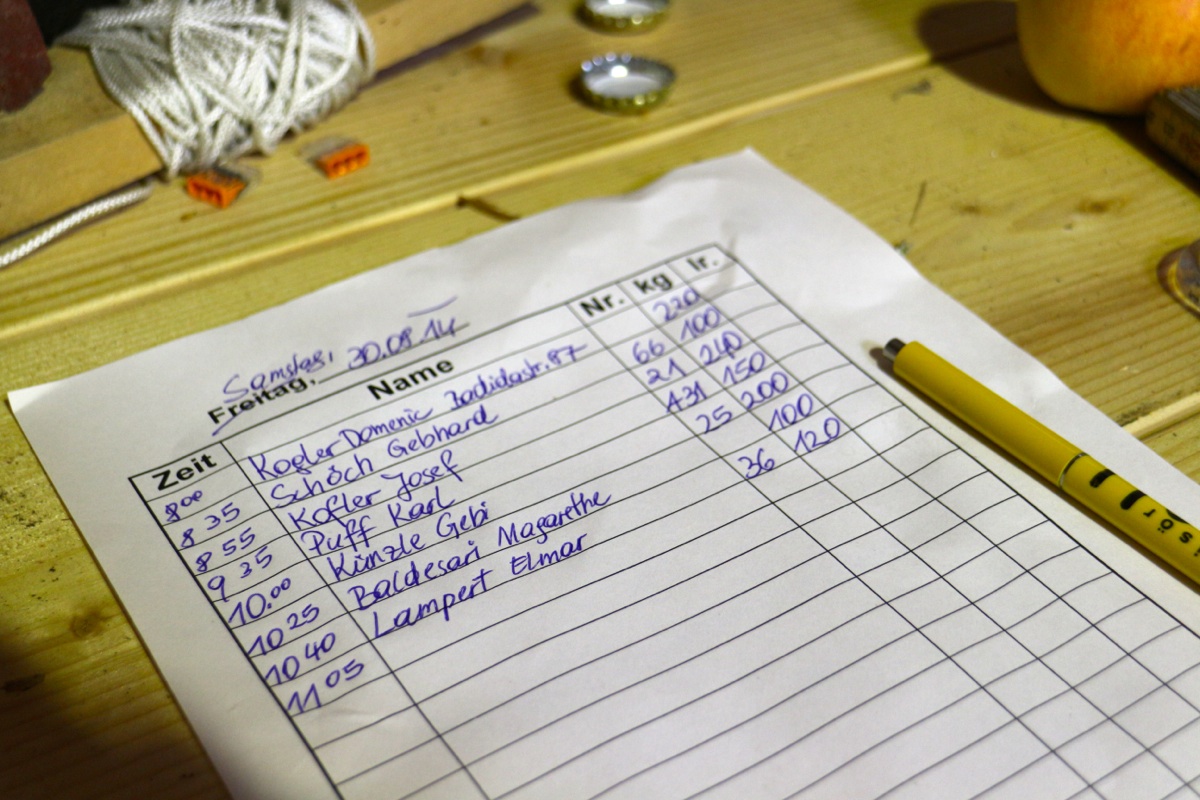 Samstag, 30.08.14
Freitag,
Zeit Name Nr. kg lr.
8 00 Kogler Domenic 87 220
8 35 Schöch Gebhard 66 100
8 55 Kofler Josef 21 240
9 35 Puff Karl 431 150
10.00 Künzle Gebi 25 200
10 25 Baldesari Magarethe 100
10 40 Lampert Elmar 36 120
11 05